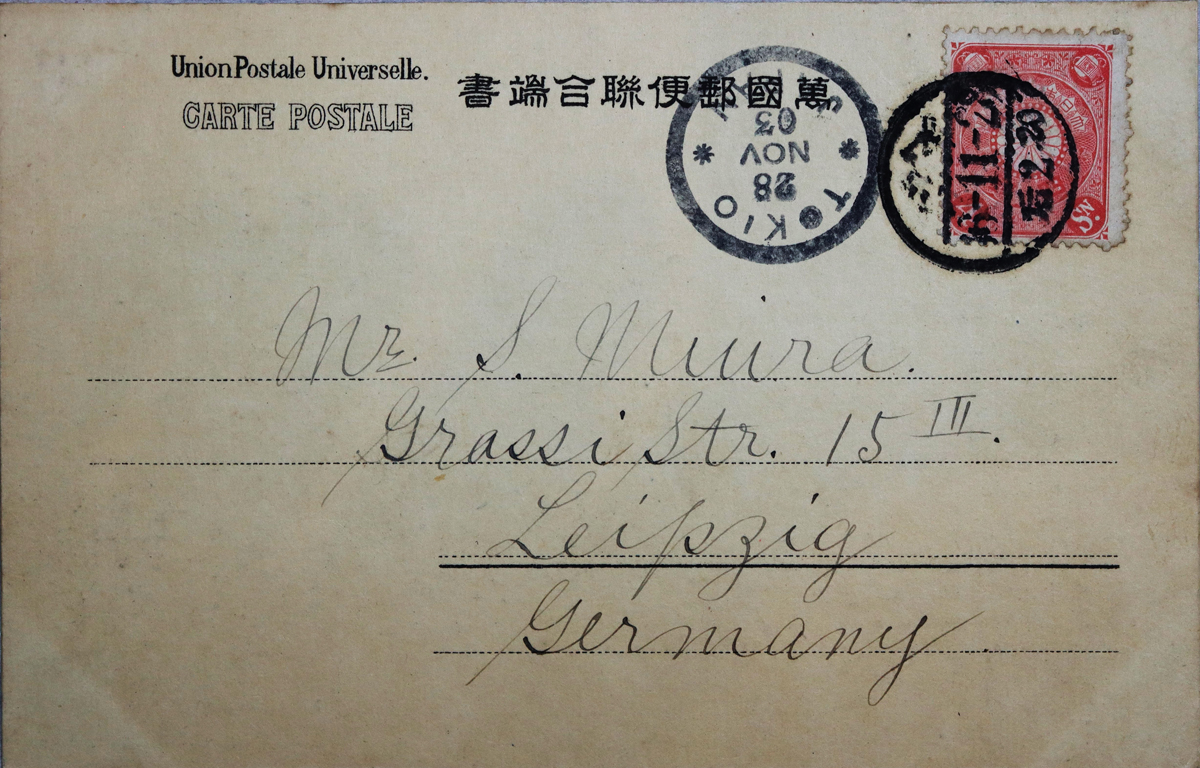 Union Postale Universelle.
CARTE POSTALE
萬國郵便聯合端書
TOKIO
28
NOV
03
11
后2.20
Sn.
Mr. S. Miura.
Grassi Str. 15 III.
Leipzig
Germany.